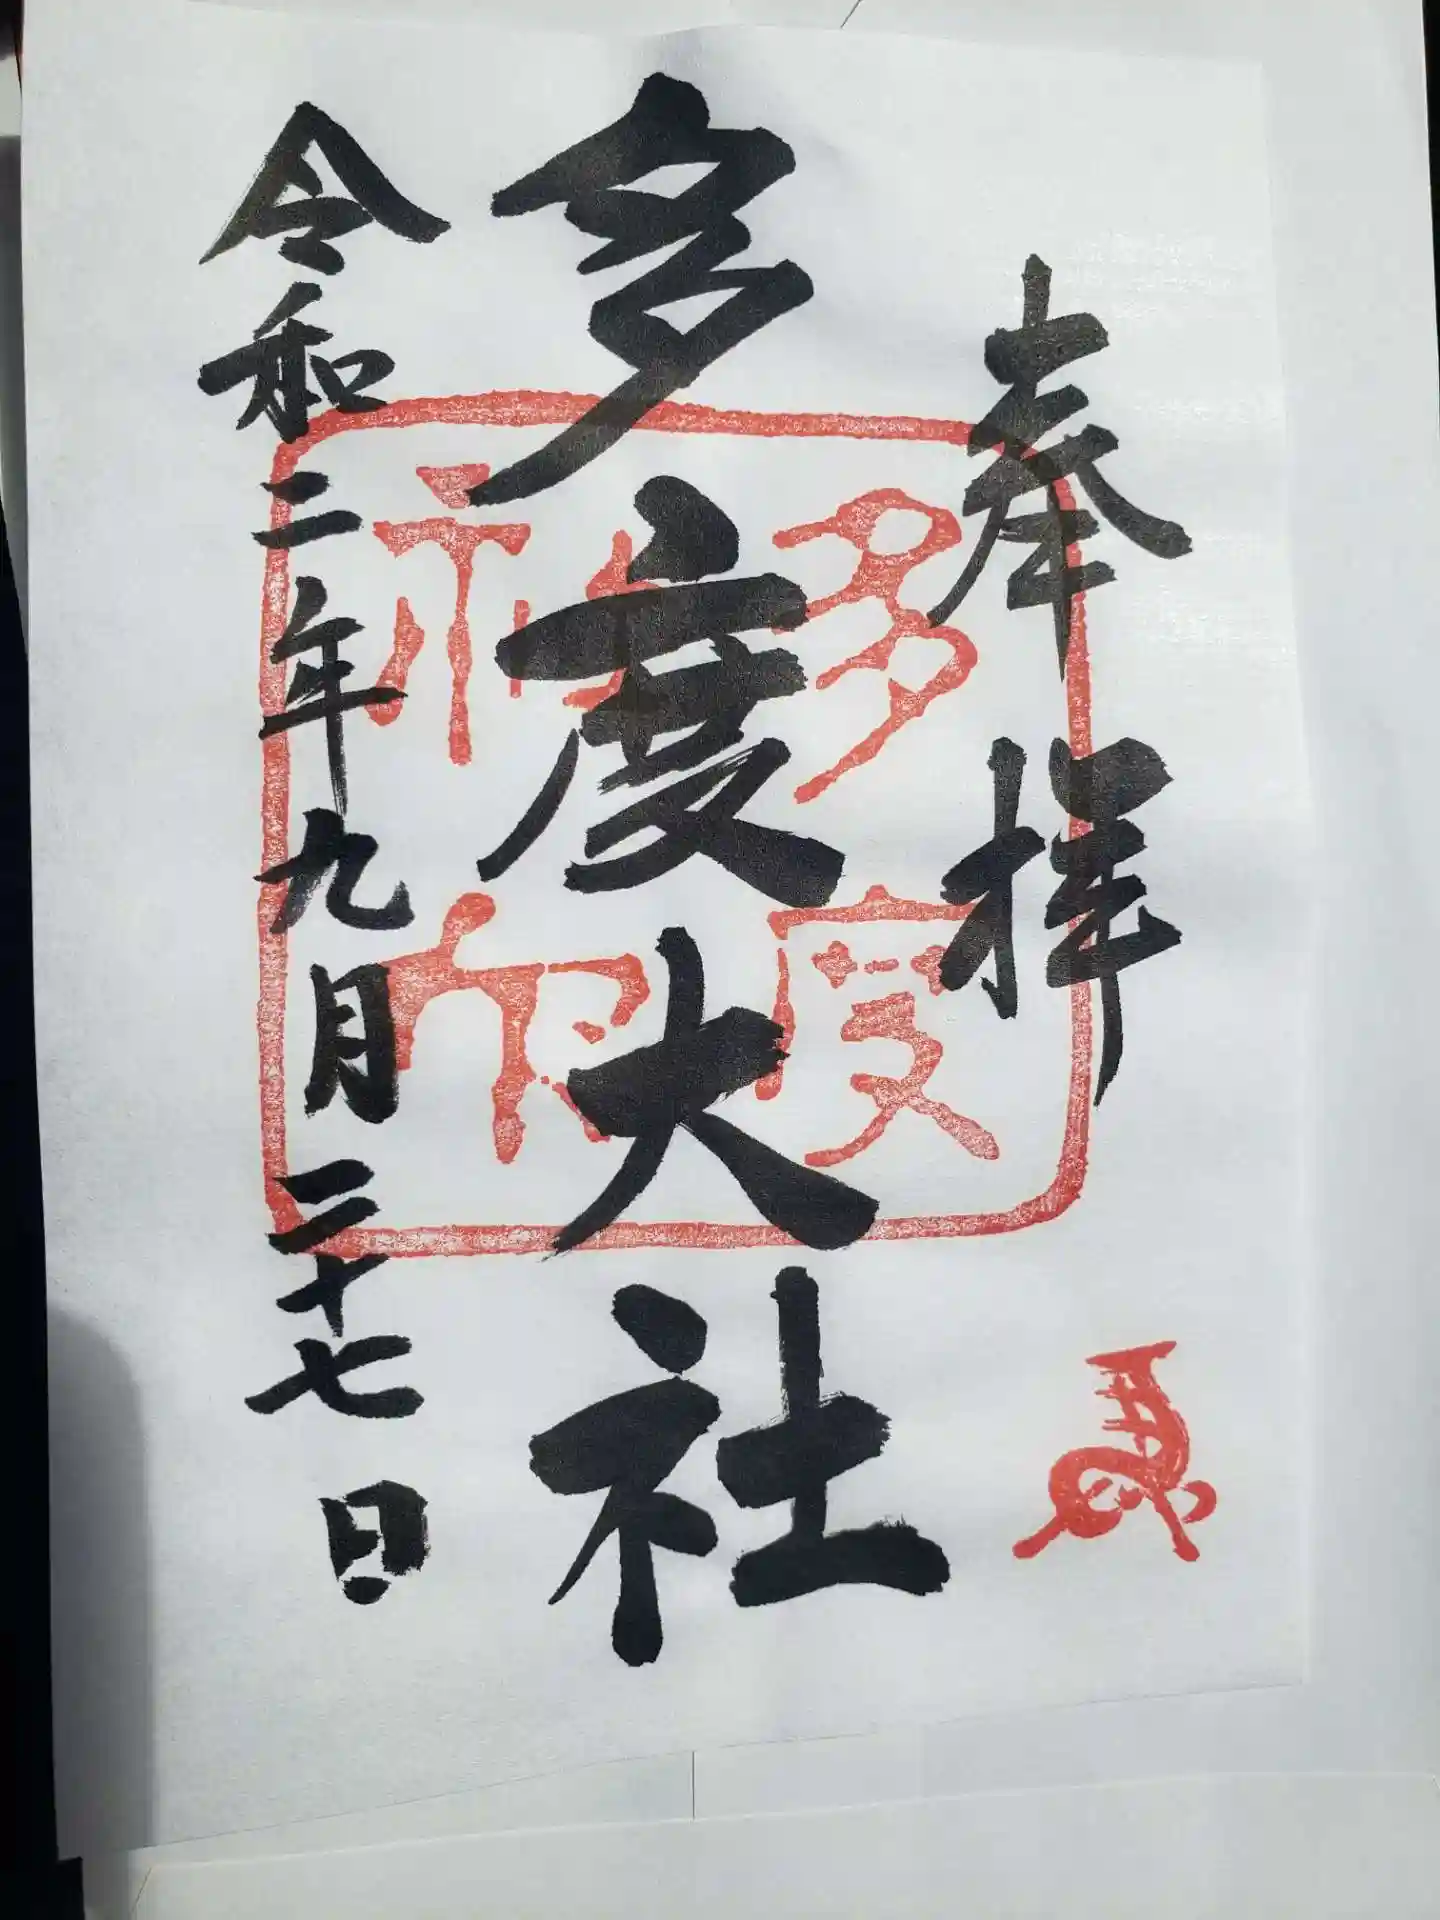 奉拝
多度大社
令和二年九月二十七日
多度神印